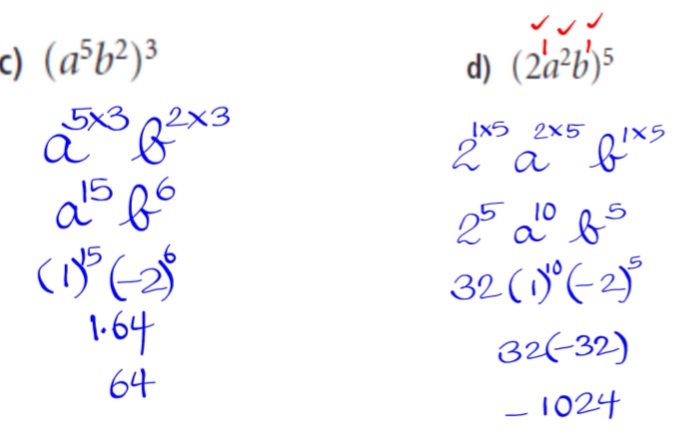 c) (a⁵b²)³
a⁵ˣ³ b²ˣ³
a¹⁵ b⁶
(1)¹⁵ (-2)⁶
1·64
64
d) (2¹a²b¹)⁵
2¹ˣ⁵ a²ˣ⁵ b¹ˣ⁵
2⁵ a¹⁰ b⁵
32(1)¹⁰(-2)⁵
32(-32)
- 1024